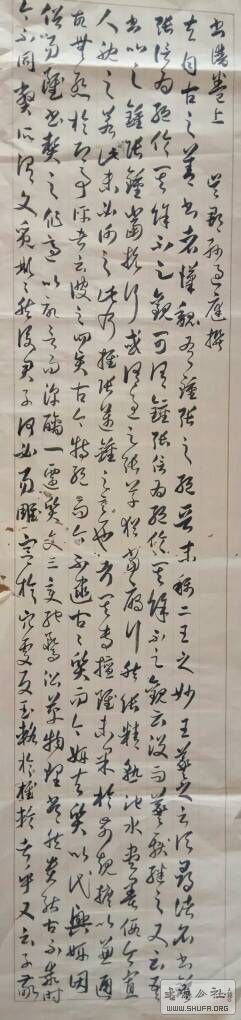 書譜卷上 吳郡孫過庭撰
夫自古之善書者漢魏有鍾張之絕晉末稱二王之妙王羲之云頃尋諸名書鍾
張信為絕倫其餘不足觀可謂鍾張信為絕倫其餘不足觀云沒而羲獻繼之又云吾
書比之鍾張鍾當抗行或謂過之張草猶當雁行然張精熟池水盡墨假令寡
人耽之若此未必謝之此乃推張邁鍾之意也考其專擅雖未果於前規摭以兼通
故無慙於即事評者云彼之四賢古今特絕而今不逮古古質而今妍夫質以代興妍因
俗易雖書契之作適以記言而淳醨一遷質文三變馳騖沿革物理常然貴能古不乖時
今不同弊所謂文質彬彬然後君子何必易雕宮於穴處反玉輅於椎輪者乎又云子敬
WWW.SHUFA.ORG